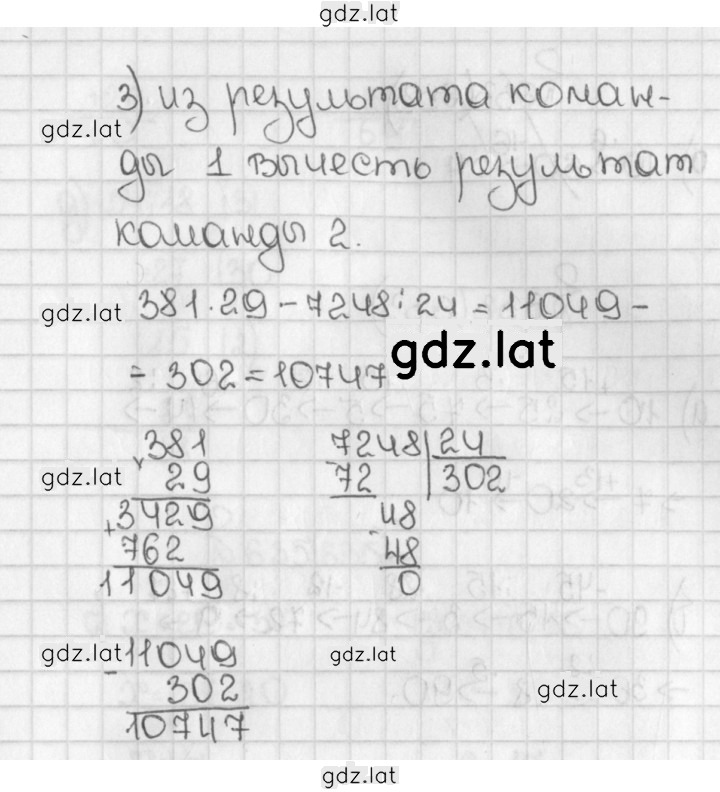 gdz.lat
3) из результата коман-
gdz.lat
ды 1 вычесть результат
команды 2.
gdz.lat 381·29 - 7248:24 = 11049 -
- 302 = 10747 gdz.lat
× 381
29
+ 3429
762
11049
gdz.lat
- 7248 | 24
72 | 302
- 48
48
0
gdz.lat - 11049
302
10747
gdz.lat
gdz.lat
gdz.lat